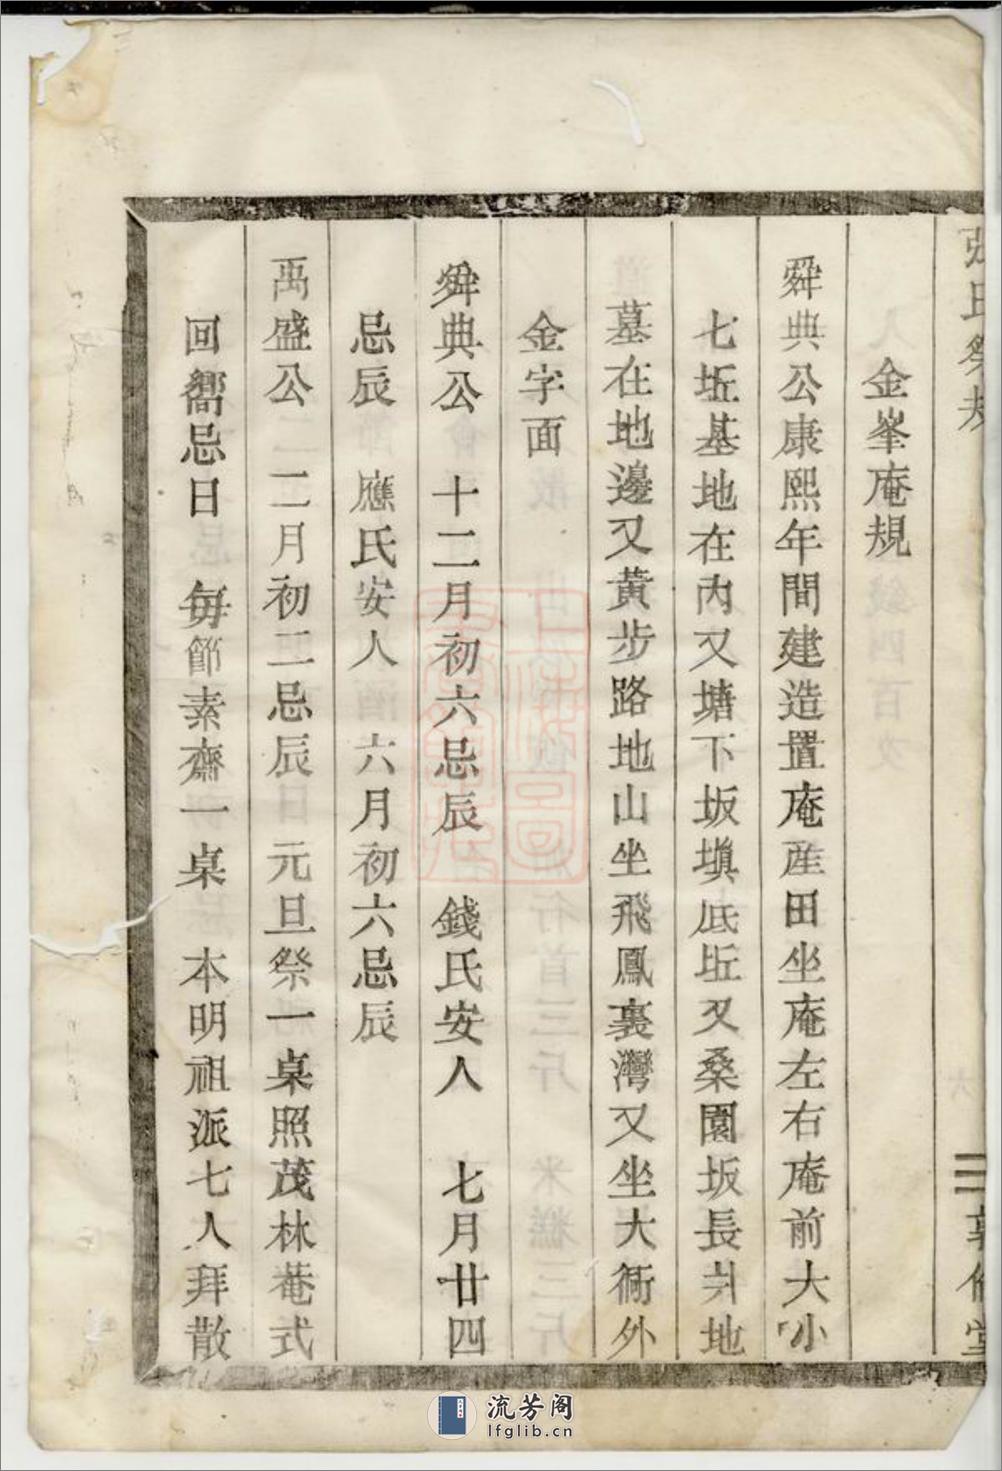 張氏祭規
敦倫堂
金峯庵規
舜典公康熙年間建造置庵産田坐庵左右庵前大小
七坵基地在內又塘下坂塡底坵又桑園坂長爿地
墓在地邊又黃步路地山坐飛鳳裏灣又坐大衕外
金字面
舜典公 十二月初六忌辰 錢氏安人 七月廿四
忌辰 應氏安人 六月初六忌辰
禹盛公 二月初二忌辰日元旦祭一桌照茂林菴式
回嚮忌日 每節素齋一桌 本明祖派七人拜散
流芳阁
lfglib.cn